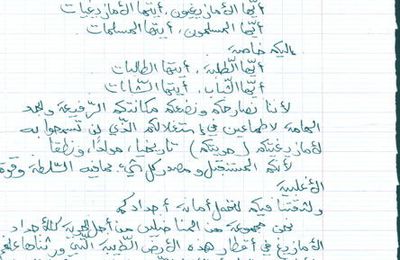 أيّها الأمازيغيون، أيتها الأمازيغيات
أيّها المسلمون، أيتها المسلمات
إليكم خاصة
أيّها الطّلبة، أيتها الطالبات
أيّها الشّباب، أيتها الشّابات
لأننا نصارحكم ونضعكم مكانتكم الرّفيعة
الهامة لا طماعين في استغلالكم الّذي لن تسمحوا به
لأمازيغيتكم (هويتكم) تاريخيا،
لأنكم المستقبل ومصدر كل شيء بما فيه السّلطة وقوة
الأغلبية
ولثقتنا فيكم لتحمل أمانة أجدادكم
نحن مجموعة من المناضلين من أجل الحرية كالأجداد
الأمازيغ في أقطار هذه الأرض الطّيبة الّتي ورثناها عنهم